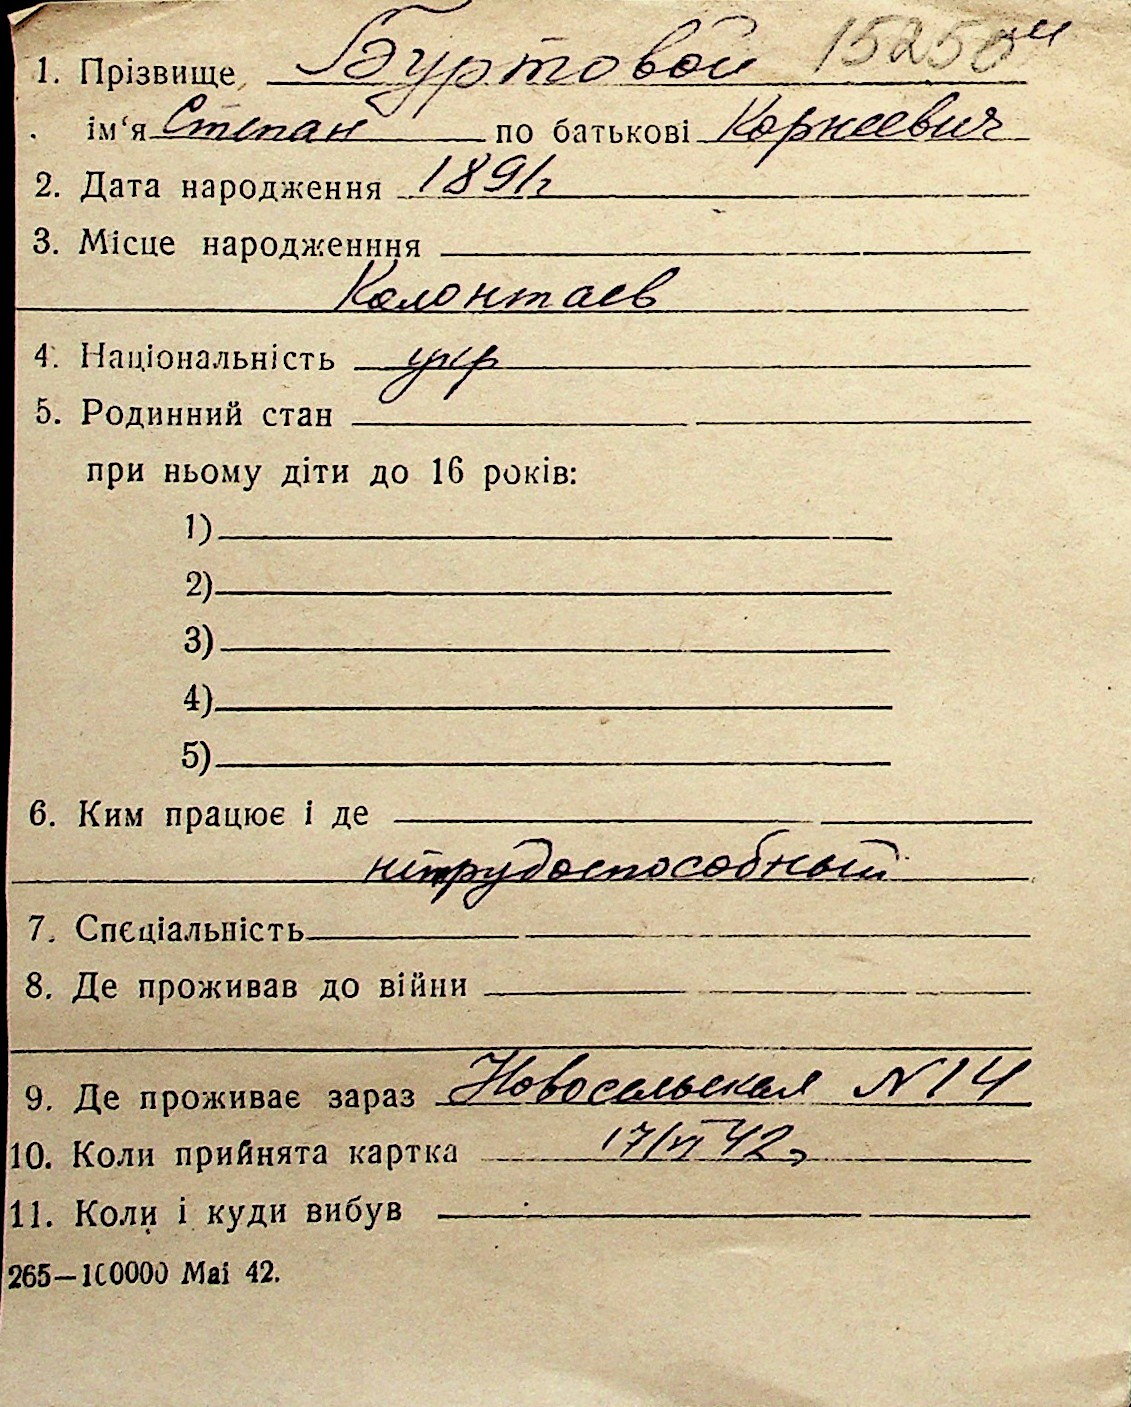 1. Прізвище Буртовой 15250
ім‘я Степан по батькові Корнеевич
2. Дата народження 1891г
3. Місце народженння
Колонтаев
4. Національність укр
5. Родинний стан
при ньому діти до 16 років:
1)
2)
3)
4)
5)
6. Ким працює і де
нетрудоспособный
7. Спеціальність
8. Де проживав до війни
9. Де проживає зараз Новосельская N 14
10. Коли прийнята картка 17/VI 42г
11. Коли і куди вибув
265—100000 Mai 42.